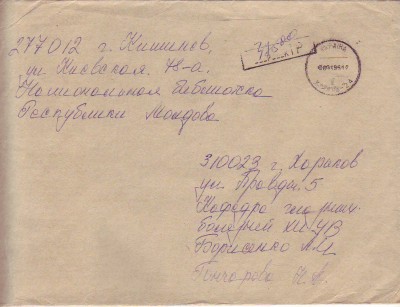 277012 г. Кишинев,
ул Киевская. 78-а,
Национальная библиотека
Республики Молдова
УКРАЇНА
310023 г Харьков
ул. Правды. 5
Кафедра
болезней
Борисенко
Гончарова